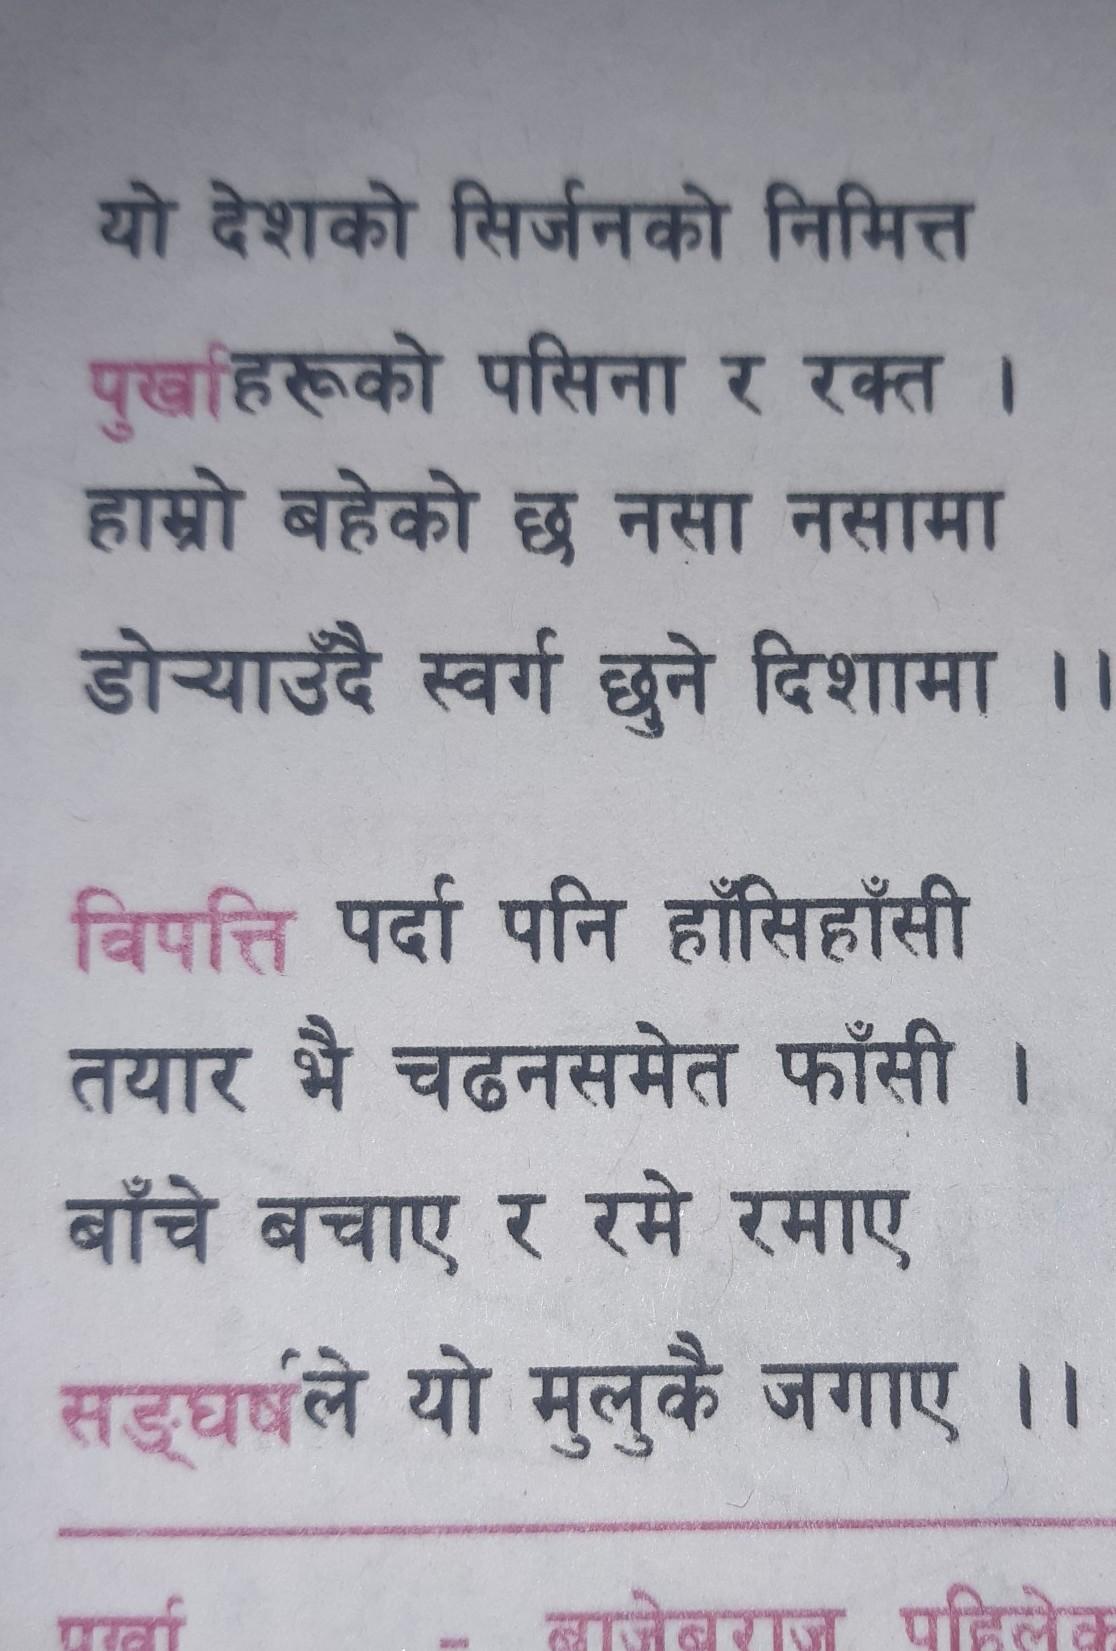 यो देशको सिर्जनको निमित्त
पुर्खाहरूको पसिना र रक्त ।
हाम्रो बहेको छ नसा नसामा
डोऱ्याउँदै स्वर्ग छुने दिशामा ।।
विपत्ति पर्दा पनि हाँसिहाँसी
तयार भै चढनसमेत फाँसी ।
बाँचे बचाए र रमे रमाए
सङ्घर्षले यो मुलुकै जगाए ।।
पुर्खा - बाजेबराजु